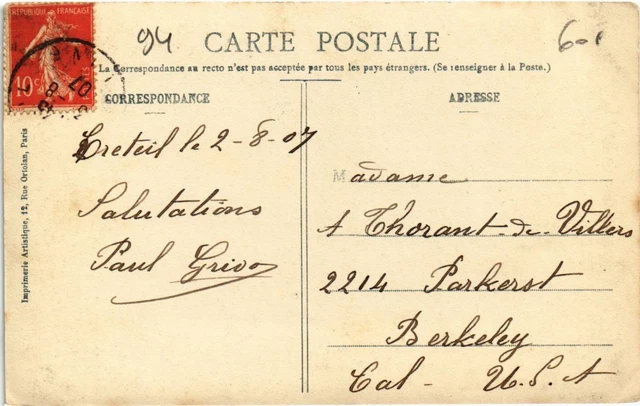 RÉPUBLIQUE FRANÇAISE
10c
94
CARTE POSTALE
60f
La Correspondance au recto n'est pas acceptée par tous les pays étrangers. (Se renseigner à la Poste.)
CORRESPONDANCE
ADRESSE
Creteil le 2-8-07
Salutations
Paul
Madame
A Thorant-de-Villers
2214 Parkerst
Berkeley
Cal - U.S.A
Imprimerie Artistique, 12, Rue Ortolan, Paris